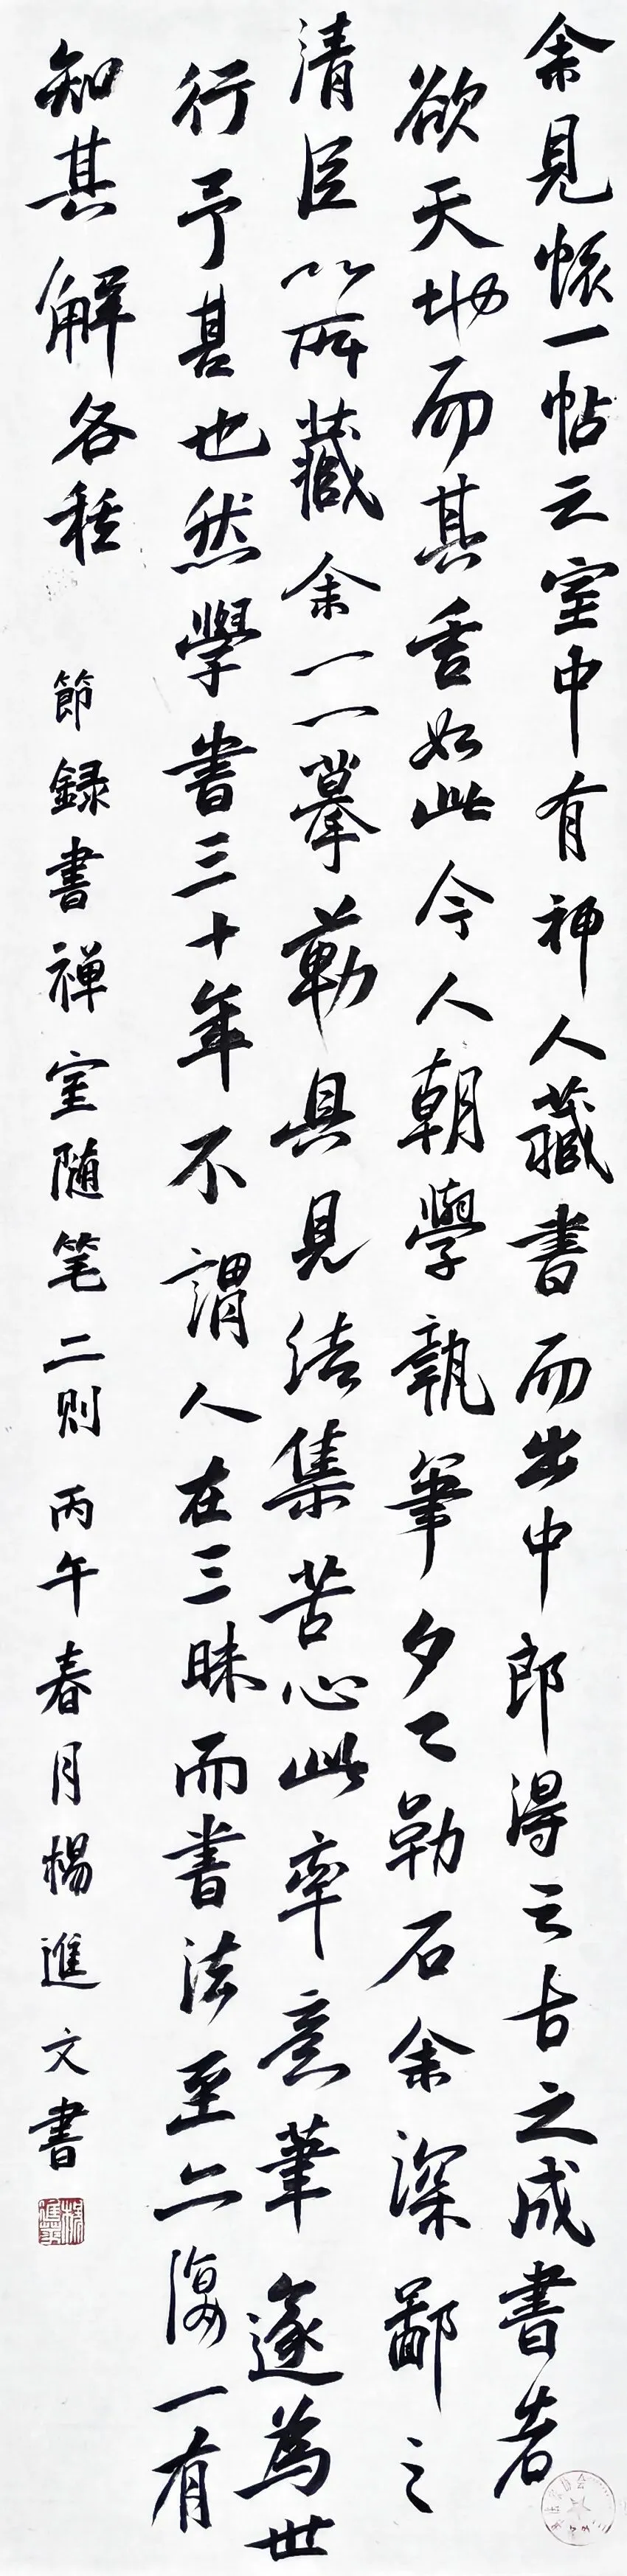 余見懷一帖云室中有神人藏書而出中郎得云古之成書者
欲天地而其舌如此今人朝學執筆夕已勒石余深鄙之
清臣以所藏余一一摹勒具見結集苦心此率意筆遂為世
行予甚也然學書三十年不謂人在三昧而書法至二復一有
知其解各種
節録書禅室随笔二则 丙午春月楊進文書